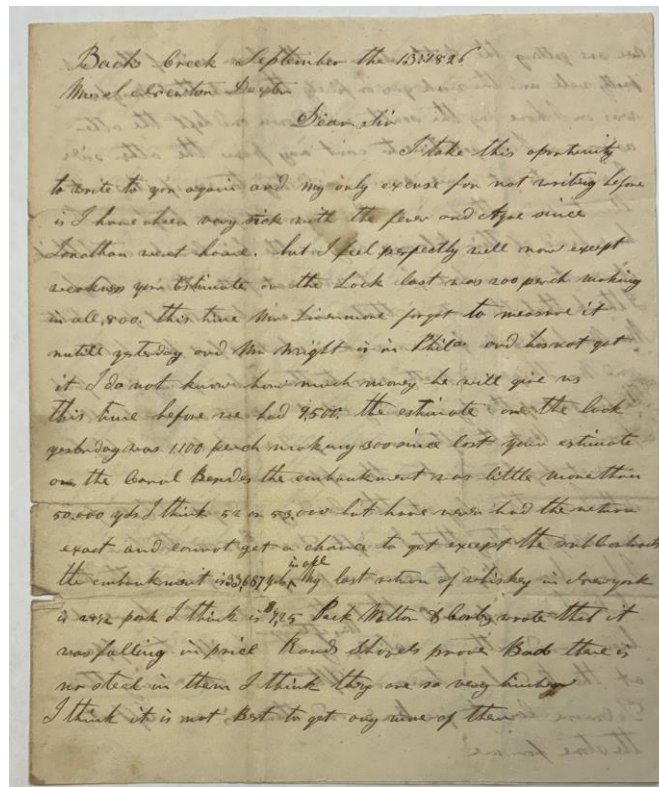 Back Creek September the 15th 1826
Dear Sir
I take this oportunity
to write to you again and my only excuse for not writing before
is I have been very sick with the fever and Ague since
Jonathan went home. but I feel perfectly well now except
weakness your Estimate on the Lock last was 200 perch making
in all 800. this time Mr Livermore forgot to measure it
untill yesterday and Mr Wright is in Phila and has not got
it I do not know how much money he will give us
this time before we had 9,500. the estimate on the lock
yesterday was 1100 perch making 300 since last your estimate
on the Canal Besides the embankment was little more than
50.000 yds I think 52 or 53.000 but have never had the return
exact and cannot get a chance to get except the
the embankment is 33,687 yds in all My last return of whiskey in New york
is pork I think is Peck Wilton & wrote that it
was falling in price Rands Shovels prove Bad there is
no steel in them I think they are so very
I think it is not Best to get any more of them